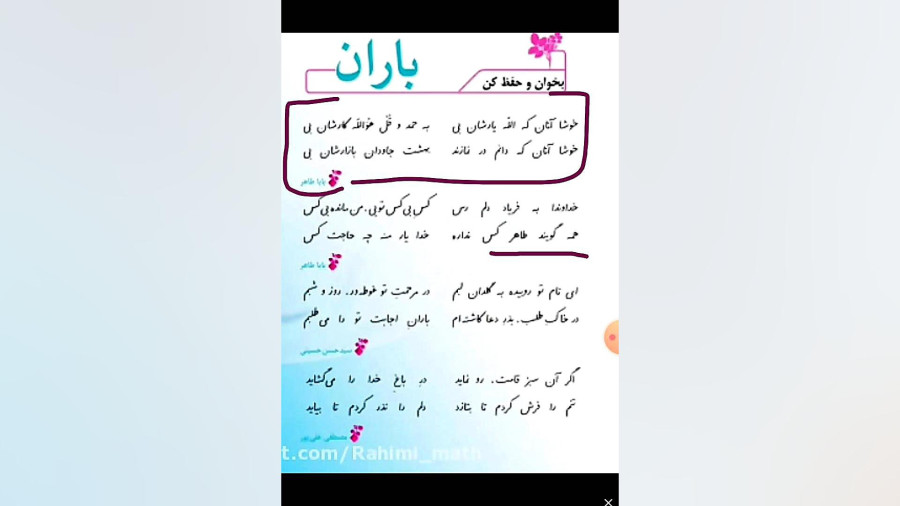 باران
بخوان و حفظ کن
خوشا آنان که الله یارشان بی به حمد و قُل هُوَالله کارشان بی
خوشا آنان که دائم در نمازند بهشت جاودان بازارشان بی
بابا طاهر
خداوندا به فریاد دلم رس کس بی‌کس تویی، من مانده بی‌کس
همه گویند طاهر کس نداره خدا یار منه چه حاجت کس
بابا طاهر
ای نام تو روییده به گلدان لبم در مرحمت تو غوطه‌ور، روز و شبم
در خاکِ طلب، بذرِ دعا کاشته‌ام بارانِ اجابت تو را می‌طلبم
سید حسن حسینی
اگر آن سبز قامت، رو نماید درِ باغِ خدا را می‌گشاید
تنم را فرش کردم تا بتازد دلم را نذر کردم تا بیاید
مصطفی علی‌پور
t.com/Rahimi_math